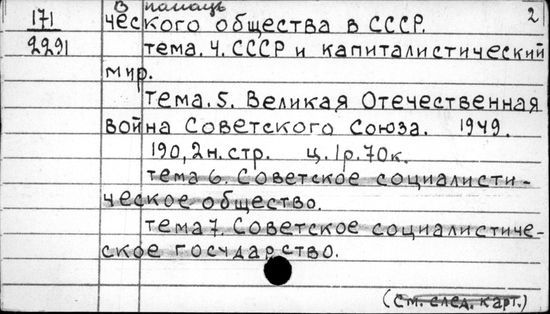 В помощь
171
2291
2
ческого общества в СССР.
тема. 4. СССР и капиталистический
мир.
Тема. 5. Великая Отечественная
война Советского Союза. 1949.
190, 2н. стр. ц. 1р. 70к.
тема 6. Советское социалисти-
ческое общество.
тема 7. Советское социалистиче-
ское государство.
(см. след. карт.)